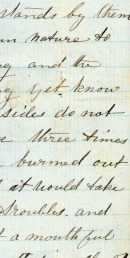 stands by them
nature to
and the
yet know
sides do not
three times
burned out
it would take
troubles. and
a mouthful